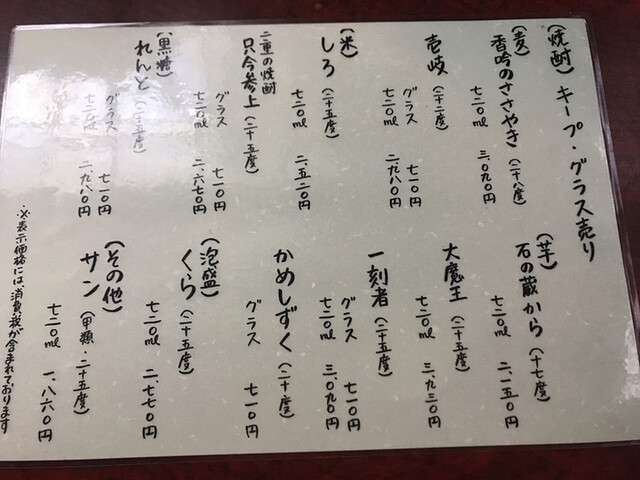 (焼酎) キープ・グラス売り
(麦)
香吟のささやき (二十八度)
七二〇ml 三、〇九〇円
壱岐 (二十二度)
グラス 七一〇円
七二〇ml 二、九八〇円
(米)
しろ (二十五度)
七二〇ml 二、五二〇円
二重の焼酎
只今参上 (二十五度)
グラス 七一〇円
七二〇ml 二、六七〇円
(黒糖)
れんと (二十五度)
グラス 七一〇円
七二〇ml 二、九八〇円
(芋)
石の蔵から (十七度)
七二〇ml 二、一五〇円
大魔王 (二十五度)
七二〇ml 三、九三〇円
一刻者 (二十五度)
グラス 七一〇円
七二〇ml 三、〇九〇円
かめしずく (二十度)
グラス 七一〇円
(泡盛)
くら (二十五度)
七二〇ml 二、七七〇円
(その他)
サン (甲類・二十五度)
七二〇ml 一、八六〇円
※表示価格には、消費税が含まれております